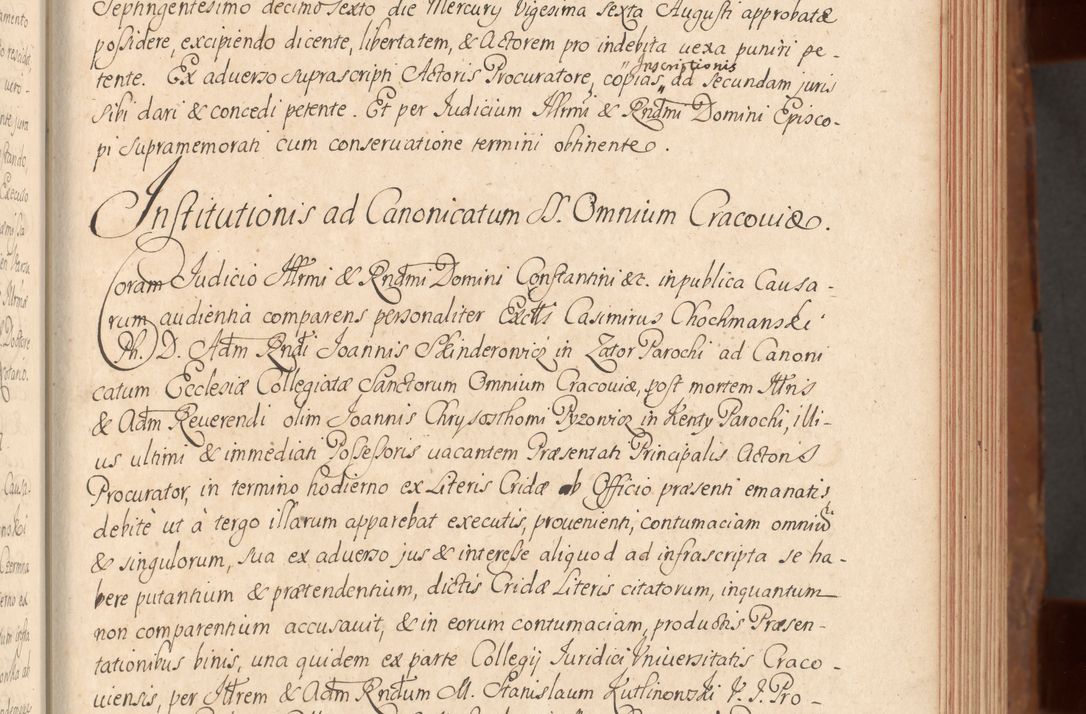 Septingentesimo decimo Sexto die Mercury Vigesima Sexta Augusti approbatæ
possidere, excipiendo dicente, libertatem, & Actorem pro indebita vexa puniri pe-
tente. Ex adverso suprascripti Actoris Procuratore, copias Inscriptionis ad Secundam juris
Sibi dari & concedi petente. Et per Judicium Illrmi & Rndmi Domini Episco-
pi supramemorati cum conservatione termini obtinente.
Institutionis ad Canonicatum SS. Omnium Cracoviæ.
Coram Judicio Illrmi & Rndmi Domini Constantini &c. in publica Causa-
rum audientia comparens personaliter Excltis Casimirus Chochmanski
Ph. D. Adm Rndi Joannis Skinderowicz in Zator Parochi ad Canoni
catum Ecclesiæ Collegiatæ Sanctorum Omnium Cracoviæ, post mortem Illris
& Adm Reverendi olim Joannis Chrysosthomi Pyzowicz in Kenty Parochi, illi-
us ultimi & immediati Possessoris vacantem Præsentati Principalis Actoris
Procurator, in termino hodierno ex Literis Cridæ ab Officio præsenti emanatis,
debitè ut à tergo illarum apparebat executis, provenienti, contumaciam omniu
& singulorum, sua ex adverso jus & interesse aliquod ad infrascripta se ha-
bere putantium & prætendentium, dictis Cridæ Literis citatorum, inquantum
non comparentium accusavit, & in eorum contumaciam, productis Præsen-
tationibus binis, una quidem ex parte Collegij Juridici Universitatis Craco-
viensis, per Illrem & Adm Rndum M. Stanislaum Kutlinowski V. J. Pro-